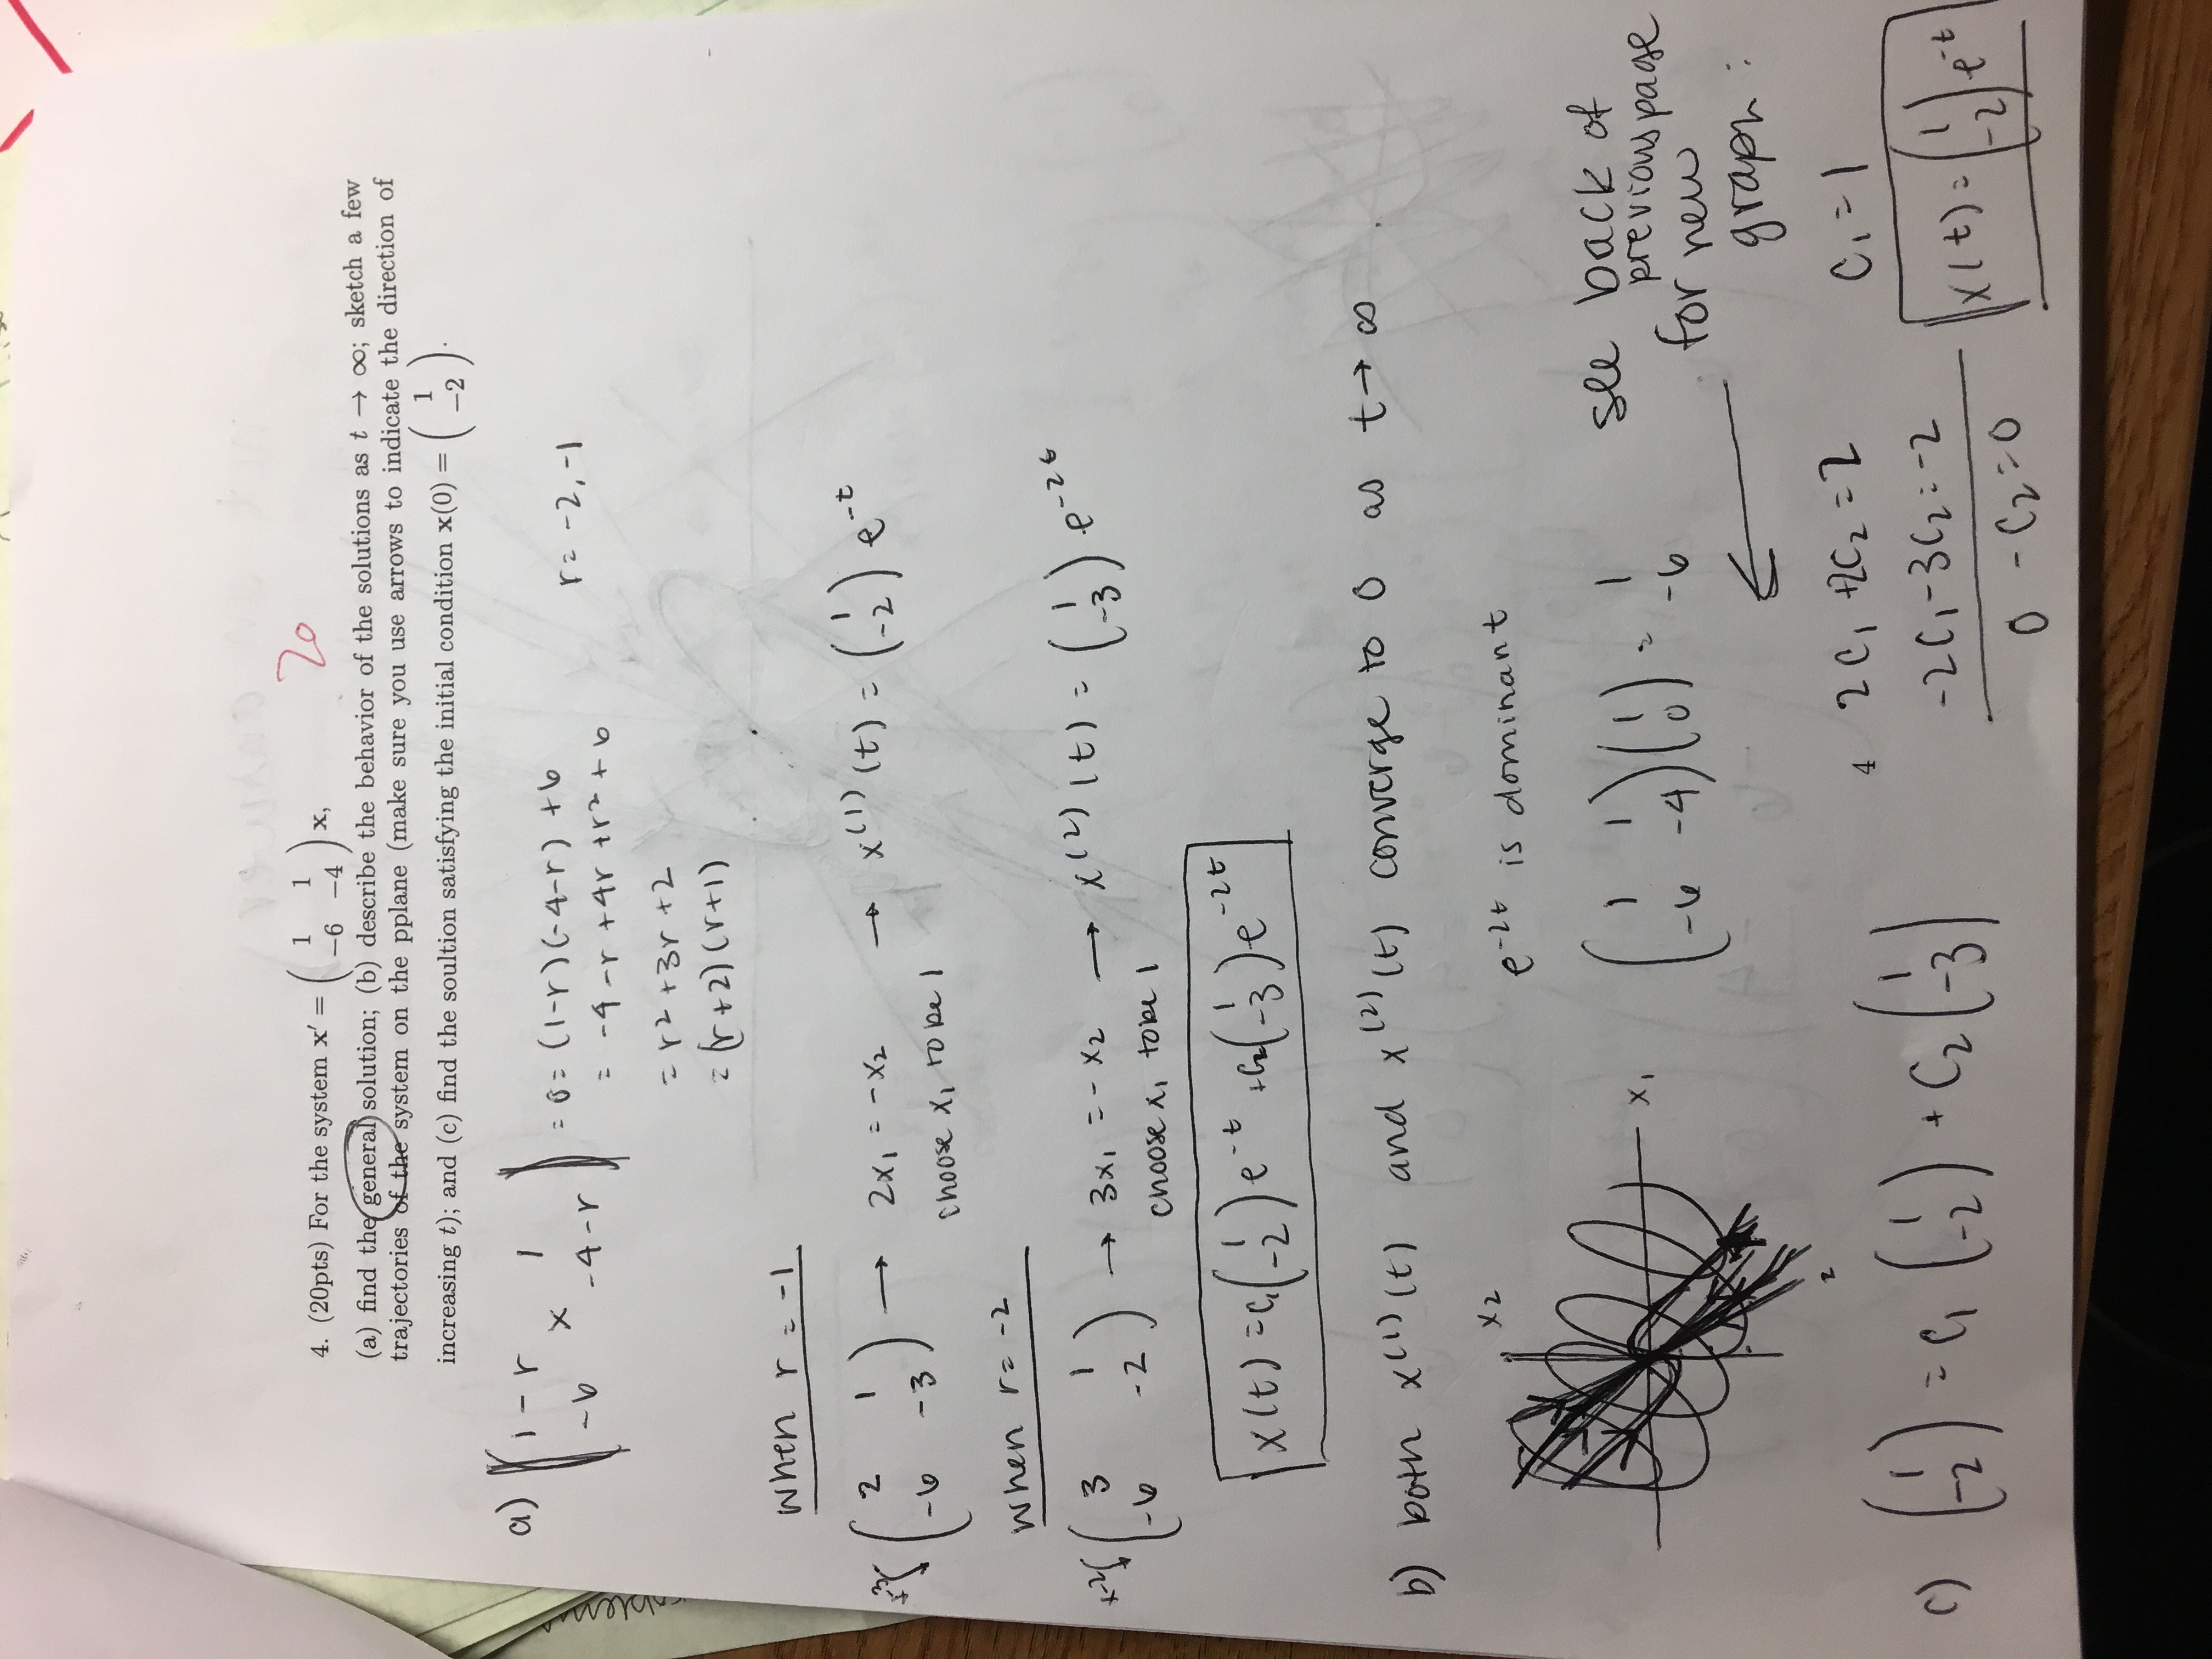 20
4. (20pts) For the system x′ = ( 1 1 −6 −4 ) x,
(a) find the general solution; (b) describe the behavior of the solutions as t → ∞; sketch a few
trajectories of the system on the pplane (make sure you use arrows to indicate the direction of
increasing t); and (c) find the soultion satisfying the initial condition x(0) = ( 1 −2 ).
a) | 1-r x 1 |
-6 -4-r
= 0 = (1-r)(-4-r) +6
= -4-r+4r+r²+6
= r²+3r+2
= (r+2)(r+1)
r= -2, -1
when r = -1
x-3 ( 2 1 -6 -3 ) → 2x₁ = -x₂ → x⁽¹⁾(t) = ( 1 -2 ) e^-t
choose x₁ to be 1
when r= -2
x-2 ( 3 1 -6 -2 ) → 3x₁ = -x₂ → x⁽²⁾(t) = ( 1 -3 ) e^-2t
choose x₁ to be 1
x(t) = c₁( 1 -2 ) e^-t + c₂( 1 -3 ) e^-2t
b) both x⁽¹⁾(t) and x⁽²⁾(t) converge to 0 as t → ∞.
x₂
x₁
2
e^-2t is dominant
( 1 1 -6 -4 )( 1 0 ) = 1 -6
see back of
previous page
for new
graph:
←
4
c) ( 1 -2 ) = c₁ ( 1 -2 ) + c₂ ( 1 -3 )
2c₁ +2c₂ = 2
-2c₁-3c₂ = -2
0 -c₂ = 0
c₁ = 1
x(t) = ( 1 -2 ) e^-t